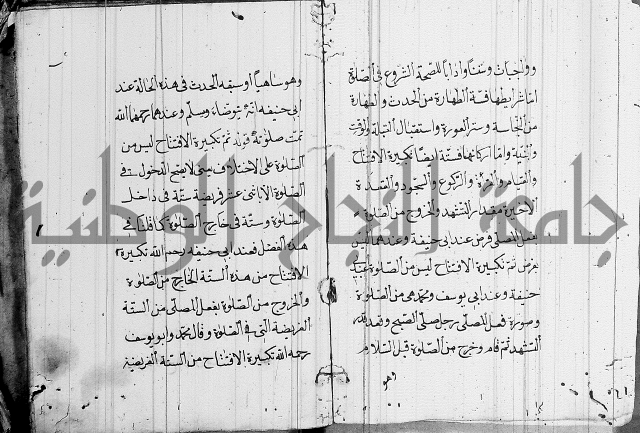 وواجبات وسننا وادابا للصحة الشروع في الصلوة
اما شرايطها فستة الطهارة من الحدث والطهارة
من النجاسة وستر العورة واستقبال القبلة والوقت
والنية واما اركانها فستة ايضا تكبيرة الافتتاح
والقيام والقراءة والركوع والسجود والقعدة
الاخيرة مقدار التشهد والخروج من الصلوة
بفعل المصلي فرض عند ابي حنيفة وعندهما ليس
بفرض ثم تكبيرة الافتتاح ليس من الصلوة عند ابي
حنيفة وعند ابي يوسف ومحمد هي من الصلوة
وصورة فعل المصلي رجل صلى الصبح وقعد قدر
التشهد ثم قام وخرج من الصلوة قبل السلام
وهو
وهو ساهيا او سبقه الحدث في هذه الحالة عند
ابي حنيفه انه يتوضاء ويسلم وعندهما رحمهما الله
تمت صلوته قوله ثم تكبيرة الافتتاح ليس من
الصلوة على الاختلاف حتى لا يصح الدخول في
الصلوة الا باثني عشر فريضة ستة في داخل
الصلوة وستة في خارج الصلوة كما قلنا في
هذا الفصل فعند ابي حنيفه رحمه الله تكبيرة
الافتتاح من هذه الستة الخارج من الصلوة
والخروج من الصلوة بفعل المصلي من الستة
الفريضة التي في الصلوة وقال محمد وابو يوسف
رحمه الله تكبيرة الافتتاح من الستة الفريضة
جامعة النجاح الوطنية